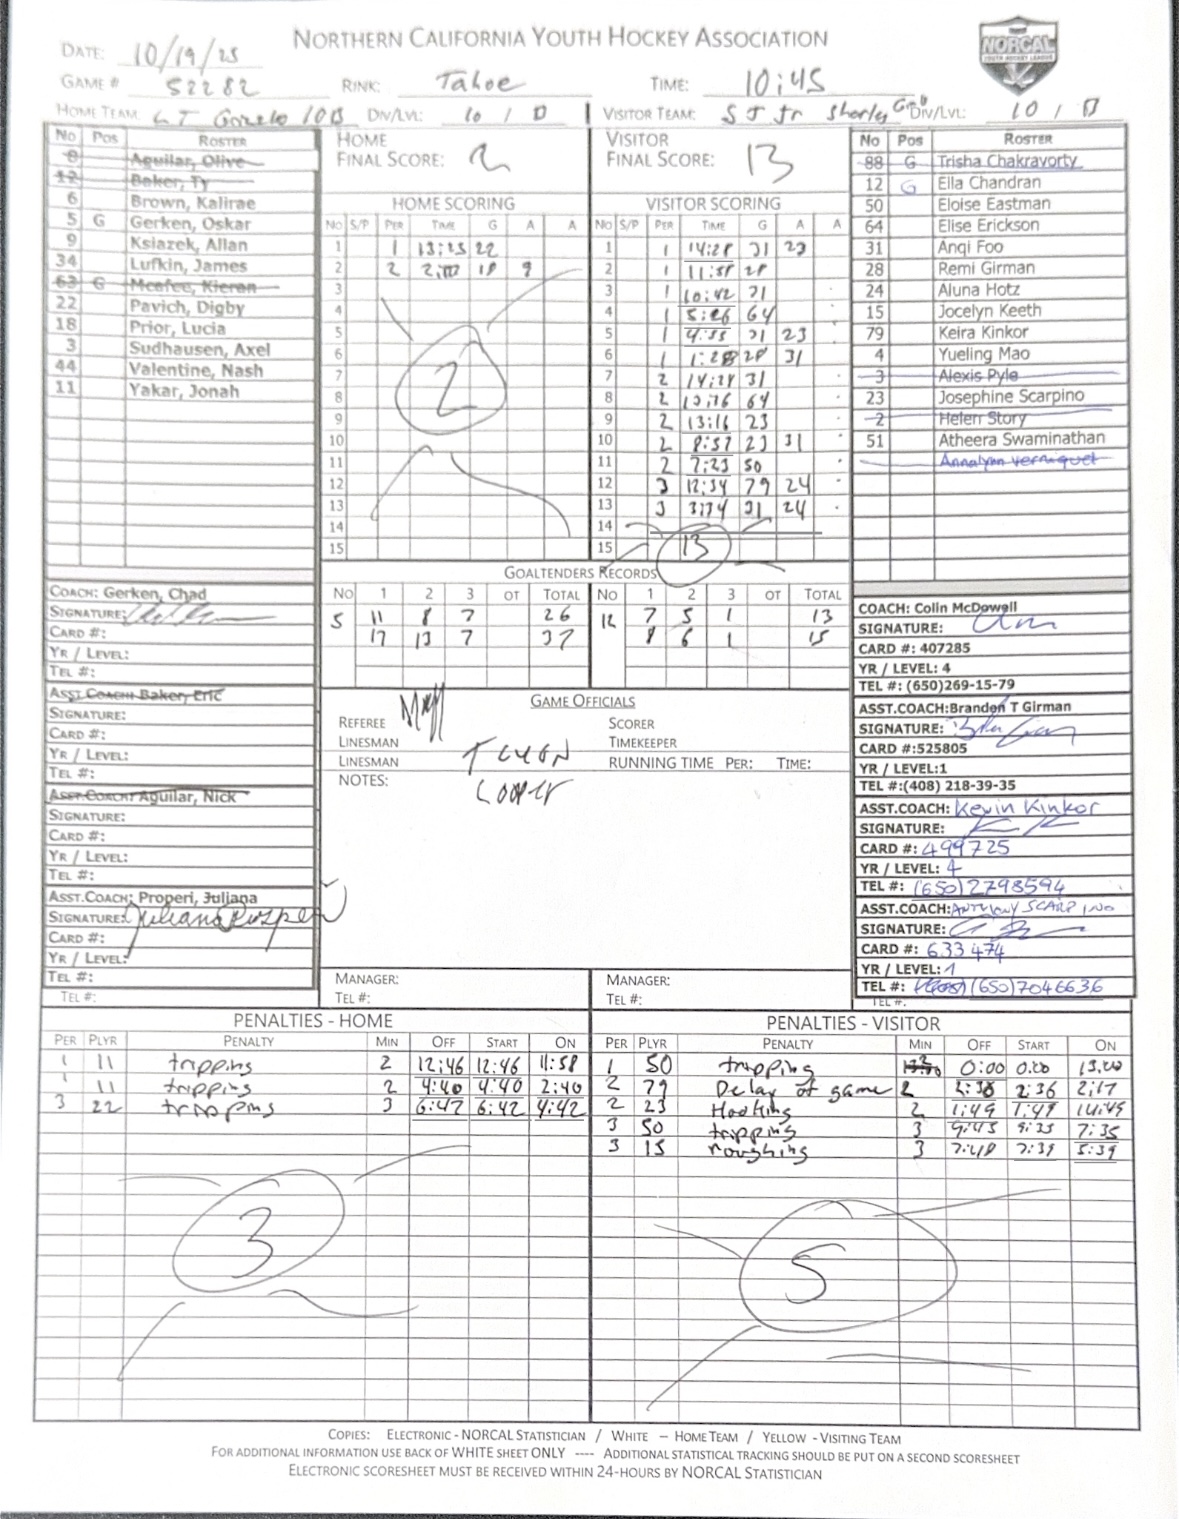 NORTHERN CALIFORNIA YOUTH HOCKEY ASSOCIATION
NORCAL
YOUTH HOCKEY LEAGUE
DATE: 10/19/25
GAME # 52282 RINK: Tahoe TIME: 10:45
HOME TEAM: LT 10B DIV/LVL: 10 / B VISITOR TEAM: SJ Jr Sharks DIV/LVL: 10 / B
No Pos ROSTER
8 Aguilar, Olive
12 Baker, Ty
6 Brown, Kalirae
5 G Gerken, Oskar
9 Ksiazek, Allan
34 Lufkin, James
63 G Mcafee, Kieran
22 Pavich, Digby
18 Prior, Lucia
3 Sudhausen, Axel
44 Valentine, Nash
11 Yakar, Jonah
HOME FINAL SCORE: 2
HOME SCORING
No S/P PER TIME G A A
1 1 13:25 22
2 2 18 9
3
4
5
6
7
8
9
10
11
12
13
14
15
2
VISITOR FINAL SCORE: 13
VISITOR SCORING
No S/P PER TIME G A A
1 1 14:28 31 23
2 1 11:58 28
3 1 10:42 31
4 1 5:26 64
5 1 4:55 31 23
6 1 1:28 28 31
7 2 14:28 31
8 2 13:36 64
9 2 13:16 23
10 2 8:57 23 31
11 2 7:23 50
12 3 12:34 79 24
13 3 31 24
14
15
13
No Pos ROSTER
88 G Trisha Chakravorty
12 G Ella Chandran
50 Eloise Eastman
64 Elise Erickson
31 Anqi Foo
28 Remi Girman
24 Aluna Hotz
15 Jocelyn Keeth
79 Keira Kinkor
4 Yueling Mao
3 Alexis Pyle
23 Josephine Scarpino
2 Helen Story
51 Atheera Swaminathan
Annalynn
GOALTENDERS RECORDS
NO 1 2 3 OT TOTAL NO 1 2 3 OT TOTAL
5 11 8 7 26 12 7 5 1 13
17 13 7 37 8 6 1 15
COACH: Gerken, Chad
SIGNATURE:
CARD #:
YR / LEVEL:
TEL #:
ASST.COACH: Baker, Eric
SIGNATURE:
CARD #:
YR / LEVEL:
TEL #:
ASST.COACH: Aguilar, Nick
SIGNATURE:
CARD #:
YR / LEVEL:
TEL #:
ASST.COACH: Properi, Juliana
SIGNATURE: Juliana Properi
CARD #:
YR / LEVEL:
TEL #:
TEL #:
GAME OFFICIALS
REFEREE SCORER
LINESMAN TIMEKEEPER
LINESMAN RUNNING TIME PER: TIME:
NOTES:
MANAGER: MANAGER:
TEL #: TEL #:
COACH: Colin McDowell
SIGNATURE:
CARD #: 407285
YR / LEVEL: 4
TEL #: (650)269-15-79
ASST.COACH:Branden T Girman
SIGNATURE:
CARD #:525805
YR / LEVEL:1
TEL #:(408) 218-39-35
ASST.COACH: Kevin Kinkor
SIGNATURE:
CARD #: 499725
YR / LEVEL: 4
TEL #: (650)2798594
ASST.COACH: ANTHONY SCARPINO
SIGNATURE:
CARD #: 633474
YR / LEVEL: 1
TEL #: (650)7046636
TEL #:
PENALTIES - HOME
PER PLYR PENALTY MIN OFF START ON
1 11 tripping 2 12:46 12:46 11:58
1 11 tripping 2 4:40 4:40 2:40
3 22 tripping 3 6:42 6:42 4:42
3
PENALTIES - VISITOR
PER PLYR PENALTY MIN OFF START ON
1 50 tripping 0:00 0:00 13:00
2 79 Delay of game 2 2:36 2:36 2:17
2 23 Hooking 2 1:49 1:49 14:49
3 50 tripping 3 9:35 7:35
3 15 roughing 3 7:39 5:39
5
COPIES: ELECTRONIC - NORCAL STATISTICIAN / WHITE – HOME TEAM / YELLOW - VISITING TEAM
FOR ADDITIONAL INFORMATION USE BACK OF WHITE SHEET ONLY ---- ADDITIONAL STATISTICAL TRACKING SHOULD BE PUT ON A SECOND SCORESHEET
ELECTRONIC SCORESHEET MUST BE RECEIVED WITHIN 24-HOURS BY NORCAL STATISTICIAN